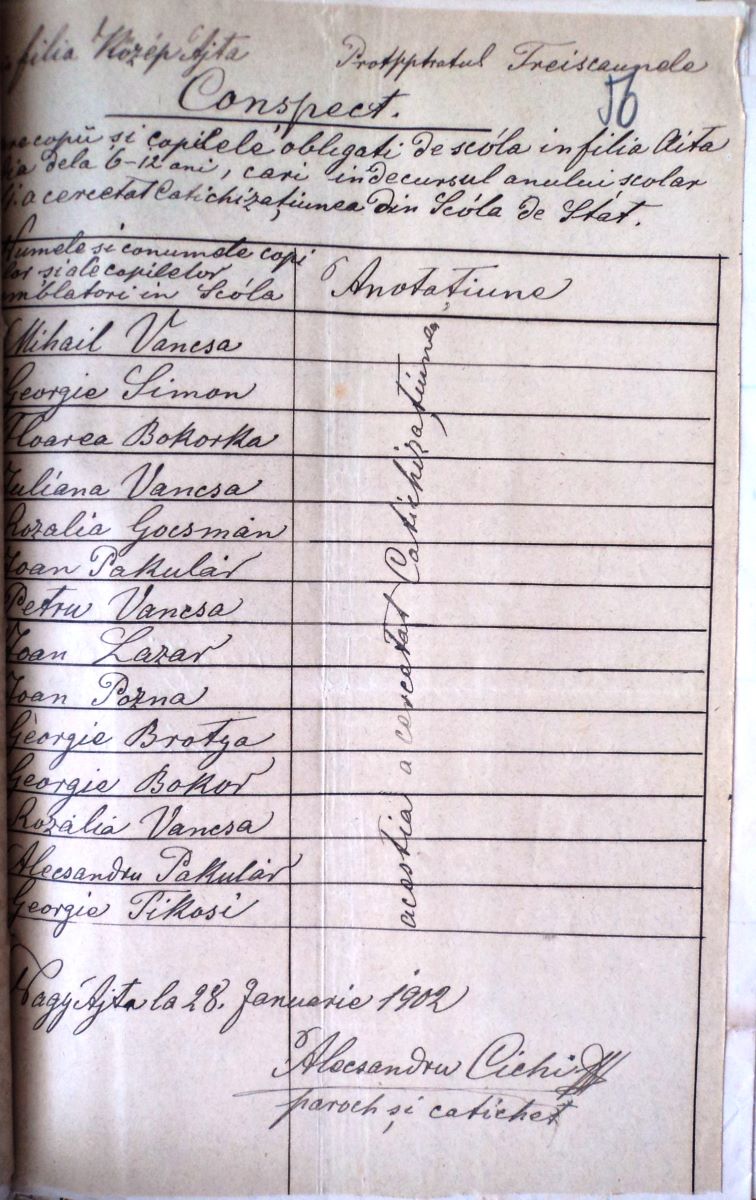 filia Közép Ajta
Protpptratul Treiscaunele
56
Conspect.
copii și copilele obligati de scóla in filia Aita
dela 6-12 ani, cari in decursul anului scolar
a cercetat Catichizațiunea din Scóla de Stát.
Numele si conumele copi
lor si ale copilelor
umblatori in Scóla
Anotațiune
Mihail Vancsa
Georgie Simon
Floarea Bokorka
Iuliana Vancsa
Rozalia Gocsmán
Joan Pakulár
Petru Vancsa
Joan Lazar
Joan Pozna
Georgie Brotya
Georgie Bokor
Rozália Vancsa
Alecsandru Pakulár
Georgie Tikosi
acestia a cercetat Catichizațiunea
Nagy Ajta la 28. Januarie 1902
Alecsandru Cichi
paroch și catichet